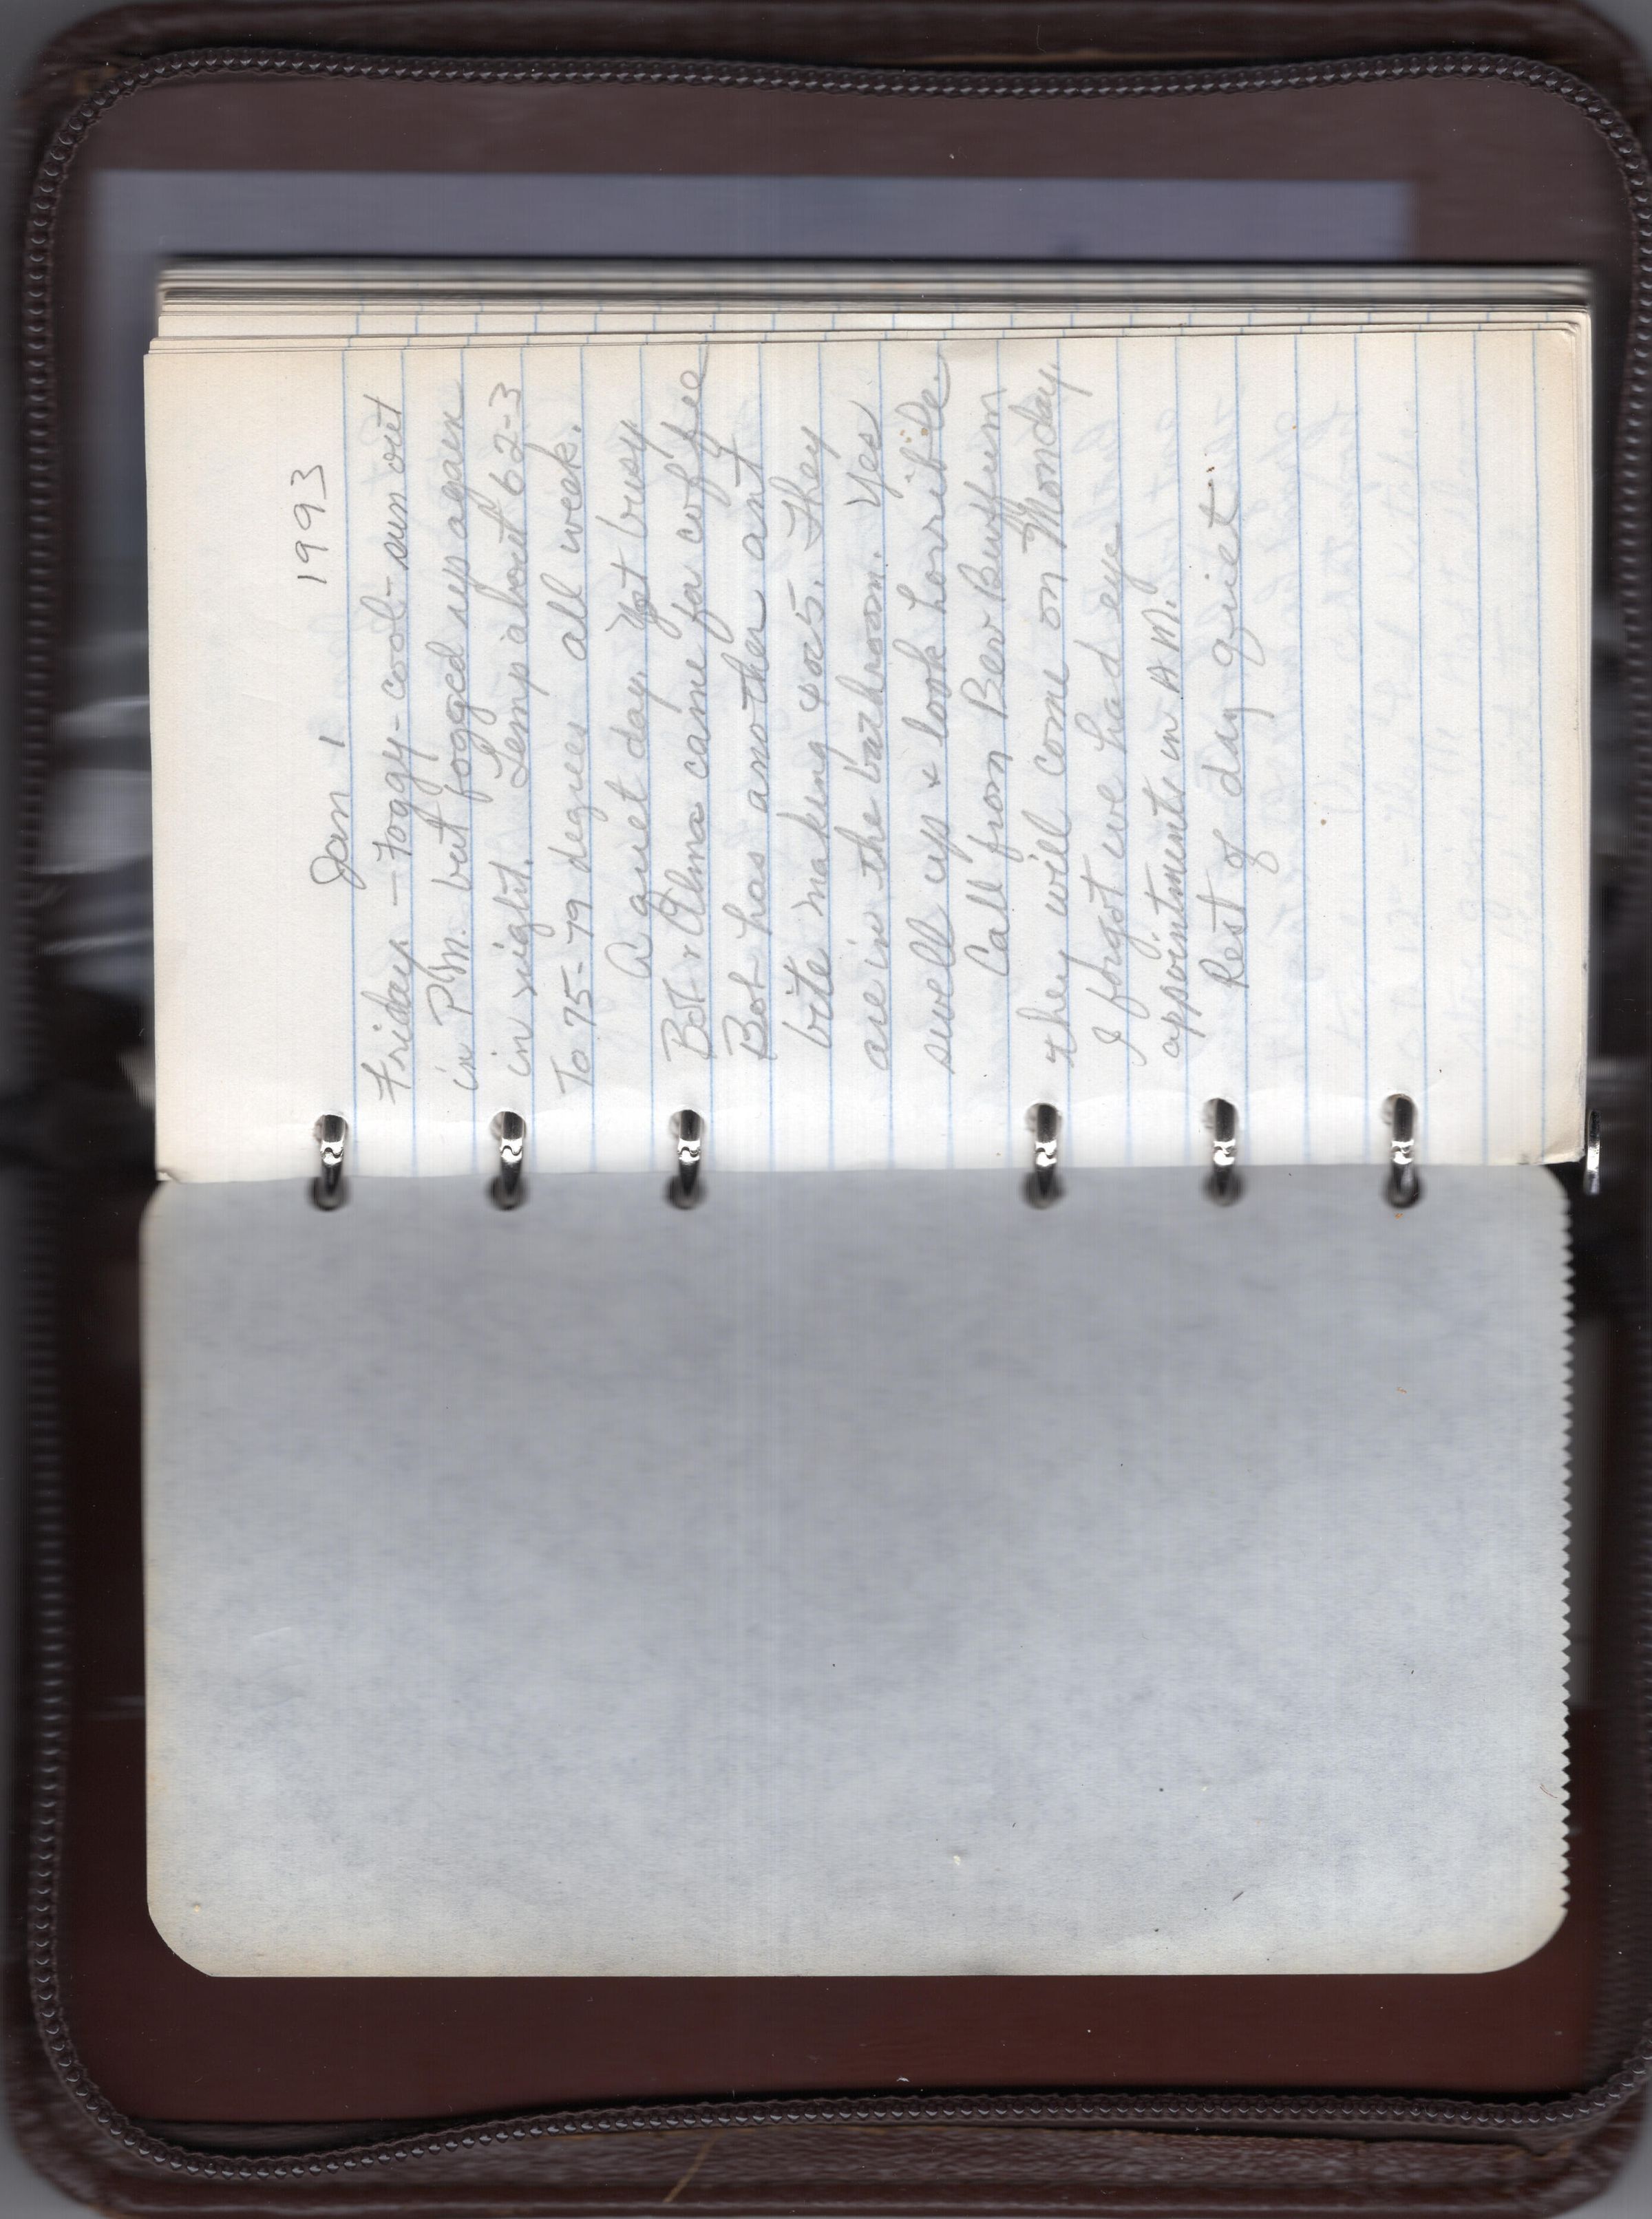 Jan 1 1993
Friday. - Foggy - cool - sun out
in P.M. but fogged up again
in night. Temp about 62-3
To 75-79 degrees all week.
A quiet day. Yet busy
Bob & Alma came for coffee
Bob has another ant
bite making 4 or 5. They
are in the bathroom. Yes
swell up & look horrible.
Call from Bev Buffum
they will come on Monday.
I forgot we had eye
appointments in A.M.
Rest of day quiet.